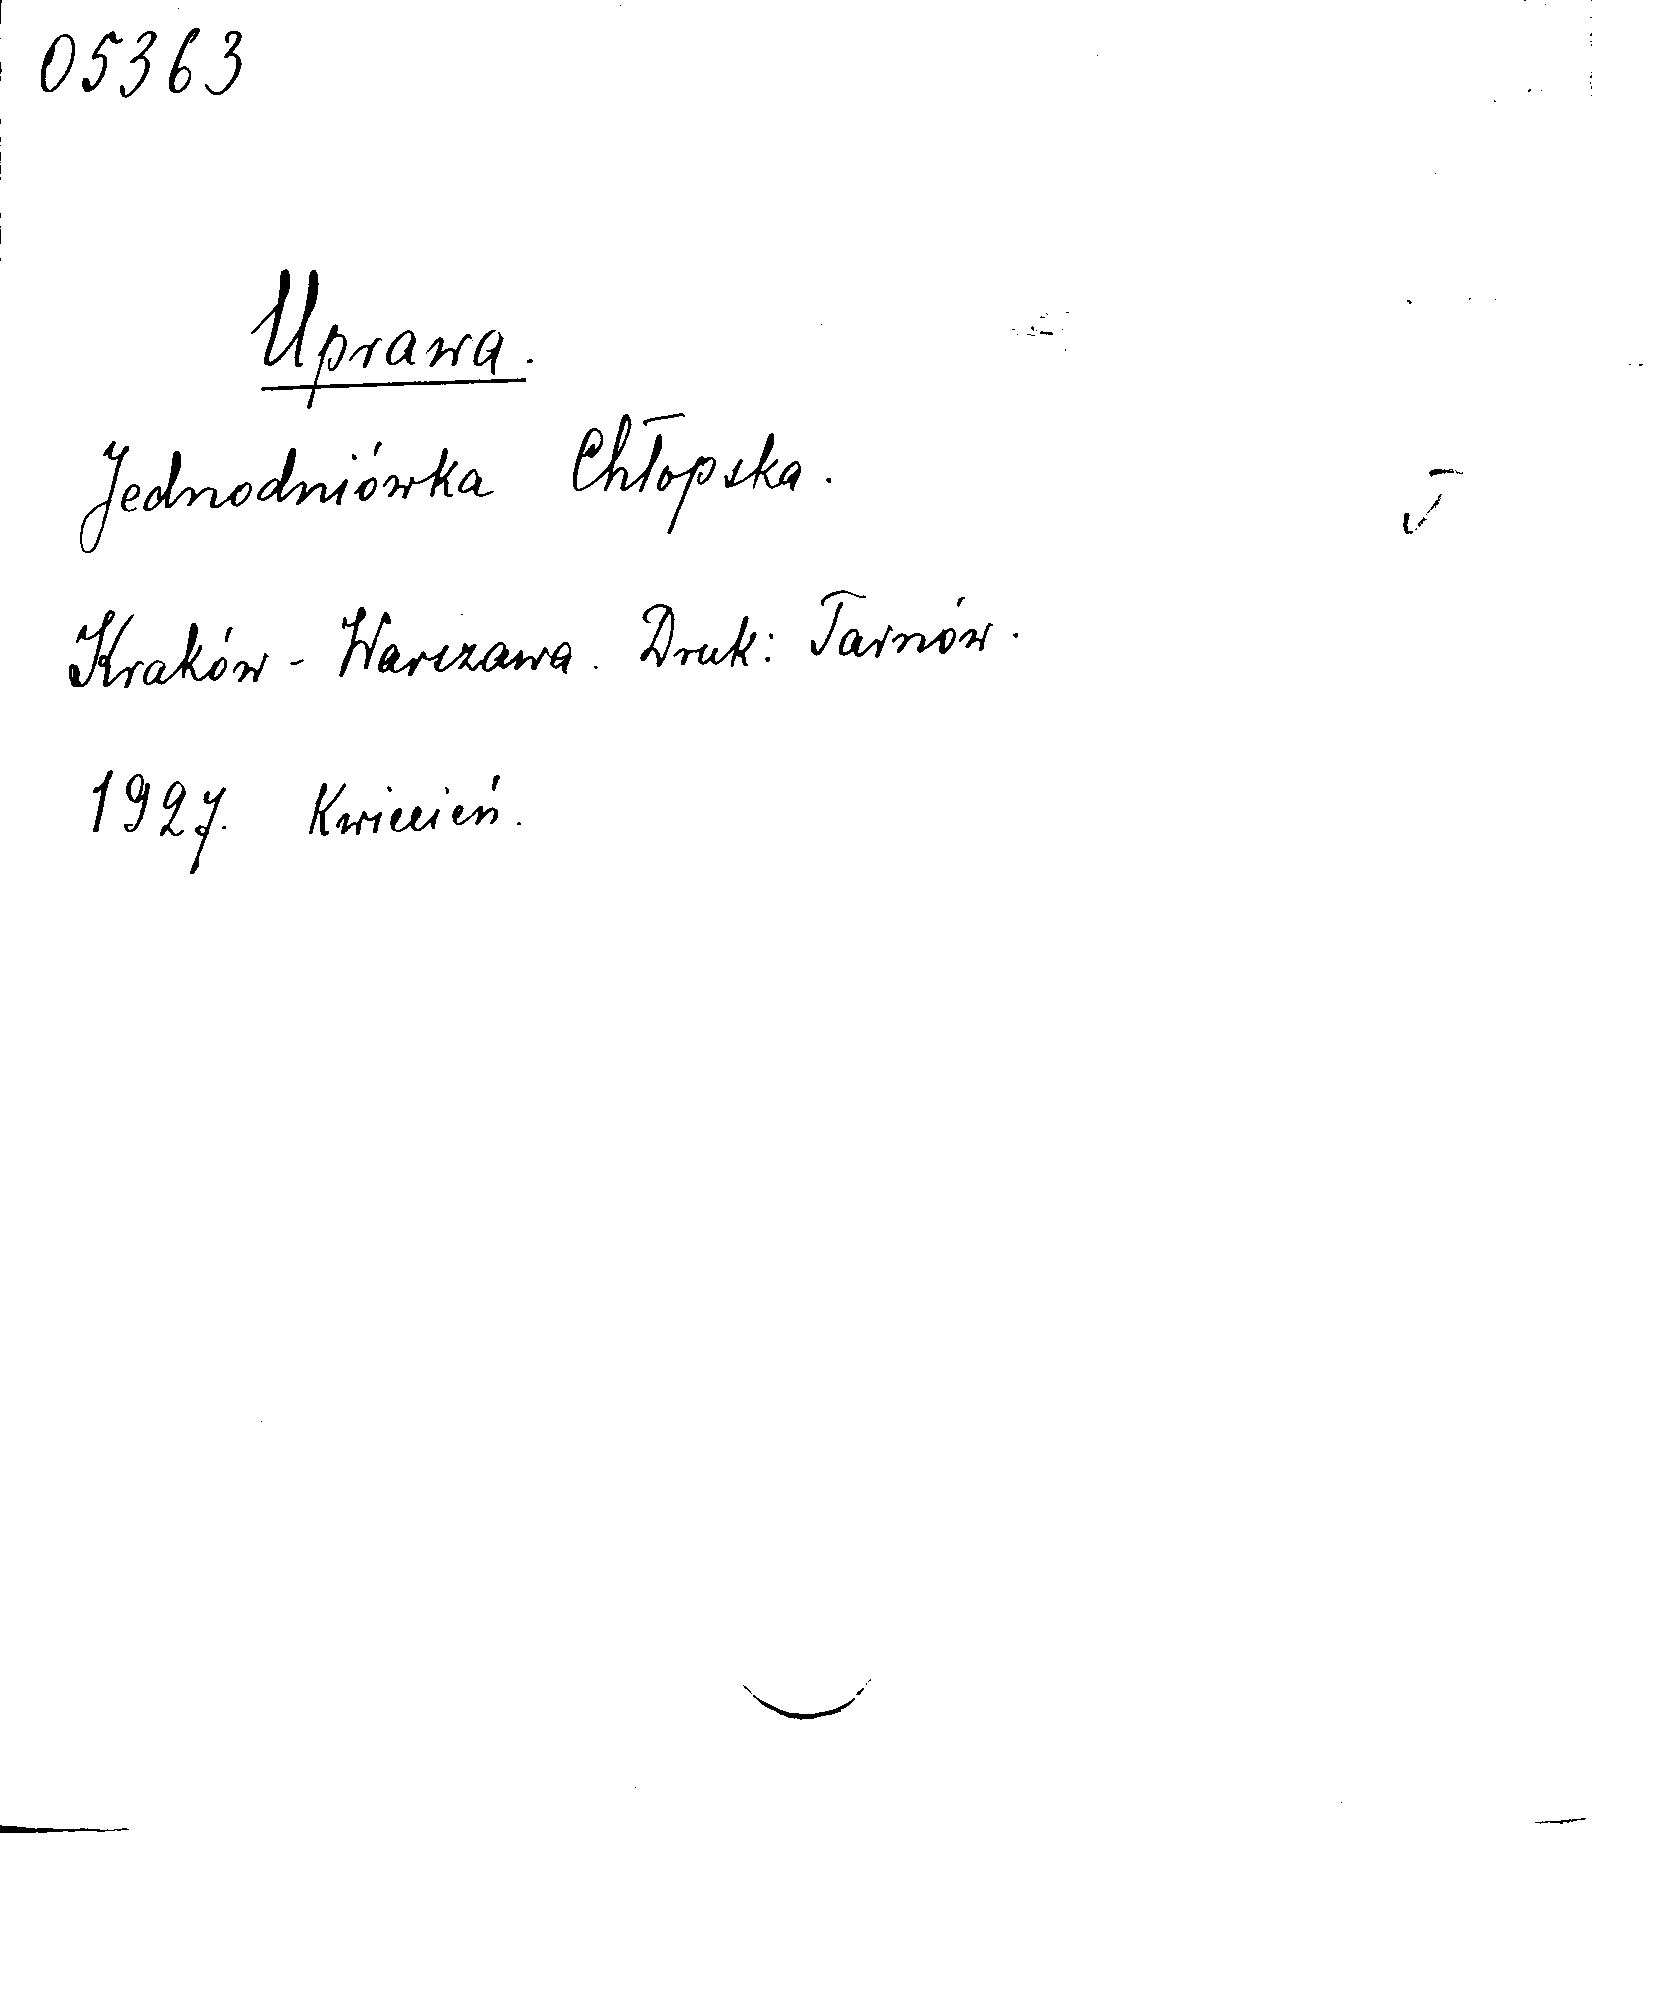 05363
Uprawa.
Jednodniówka Chłopska.
Kraków - Warszawa. Druk: Tarnów.
1927. Kwiecień.